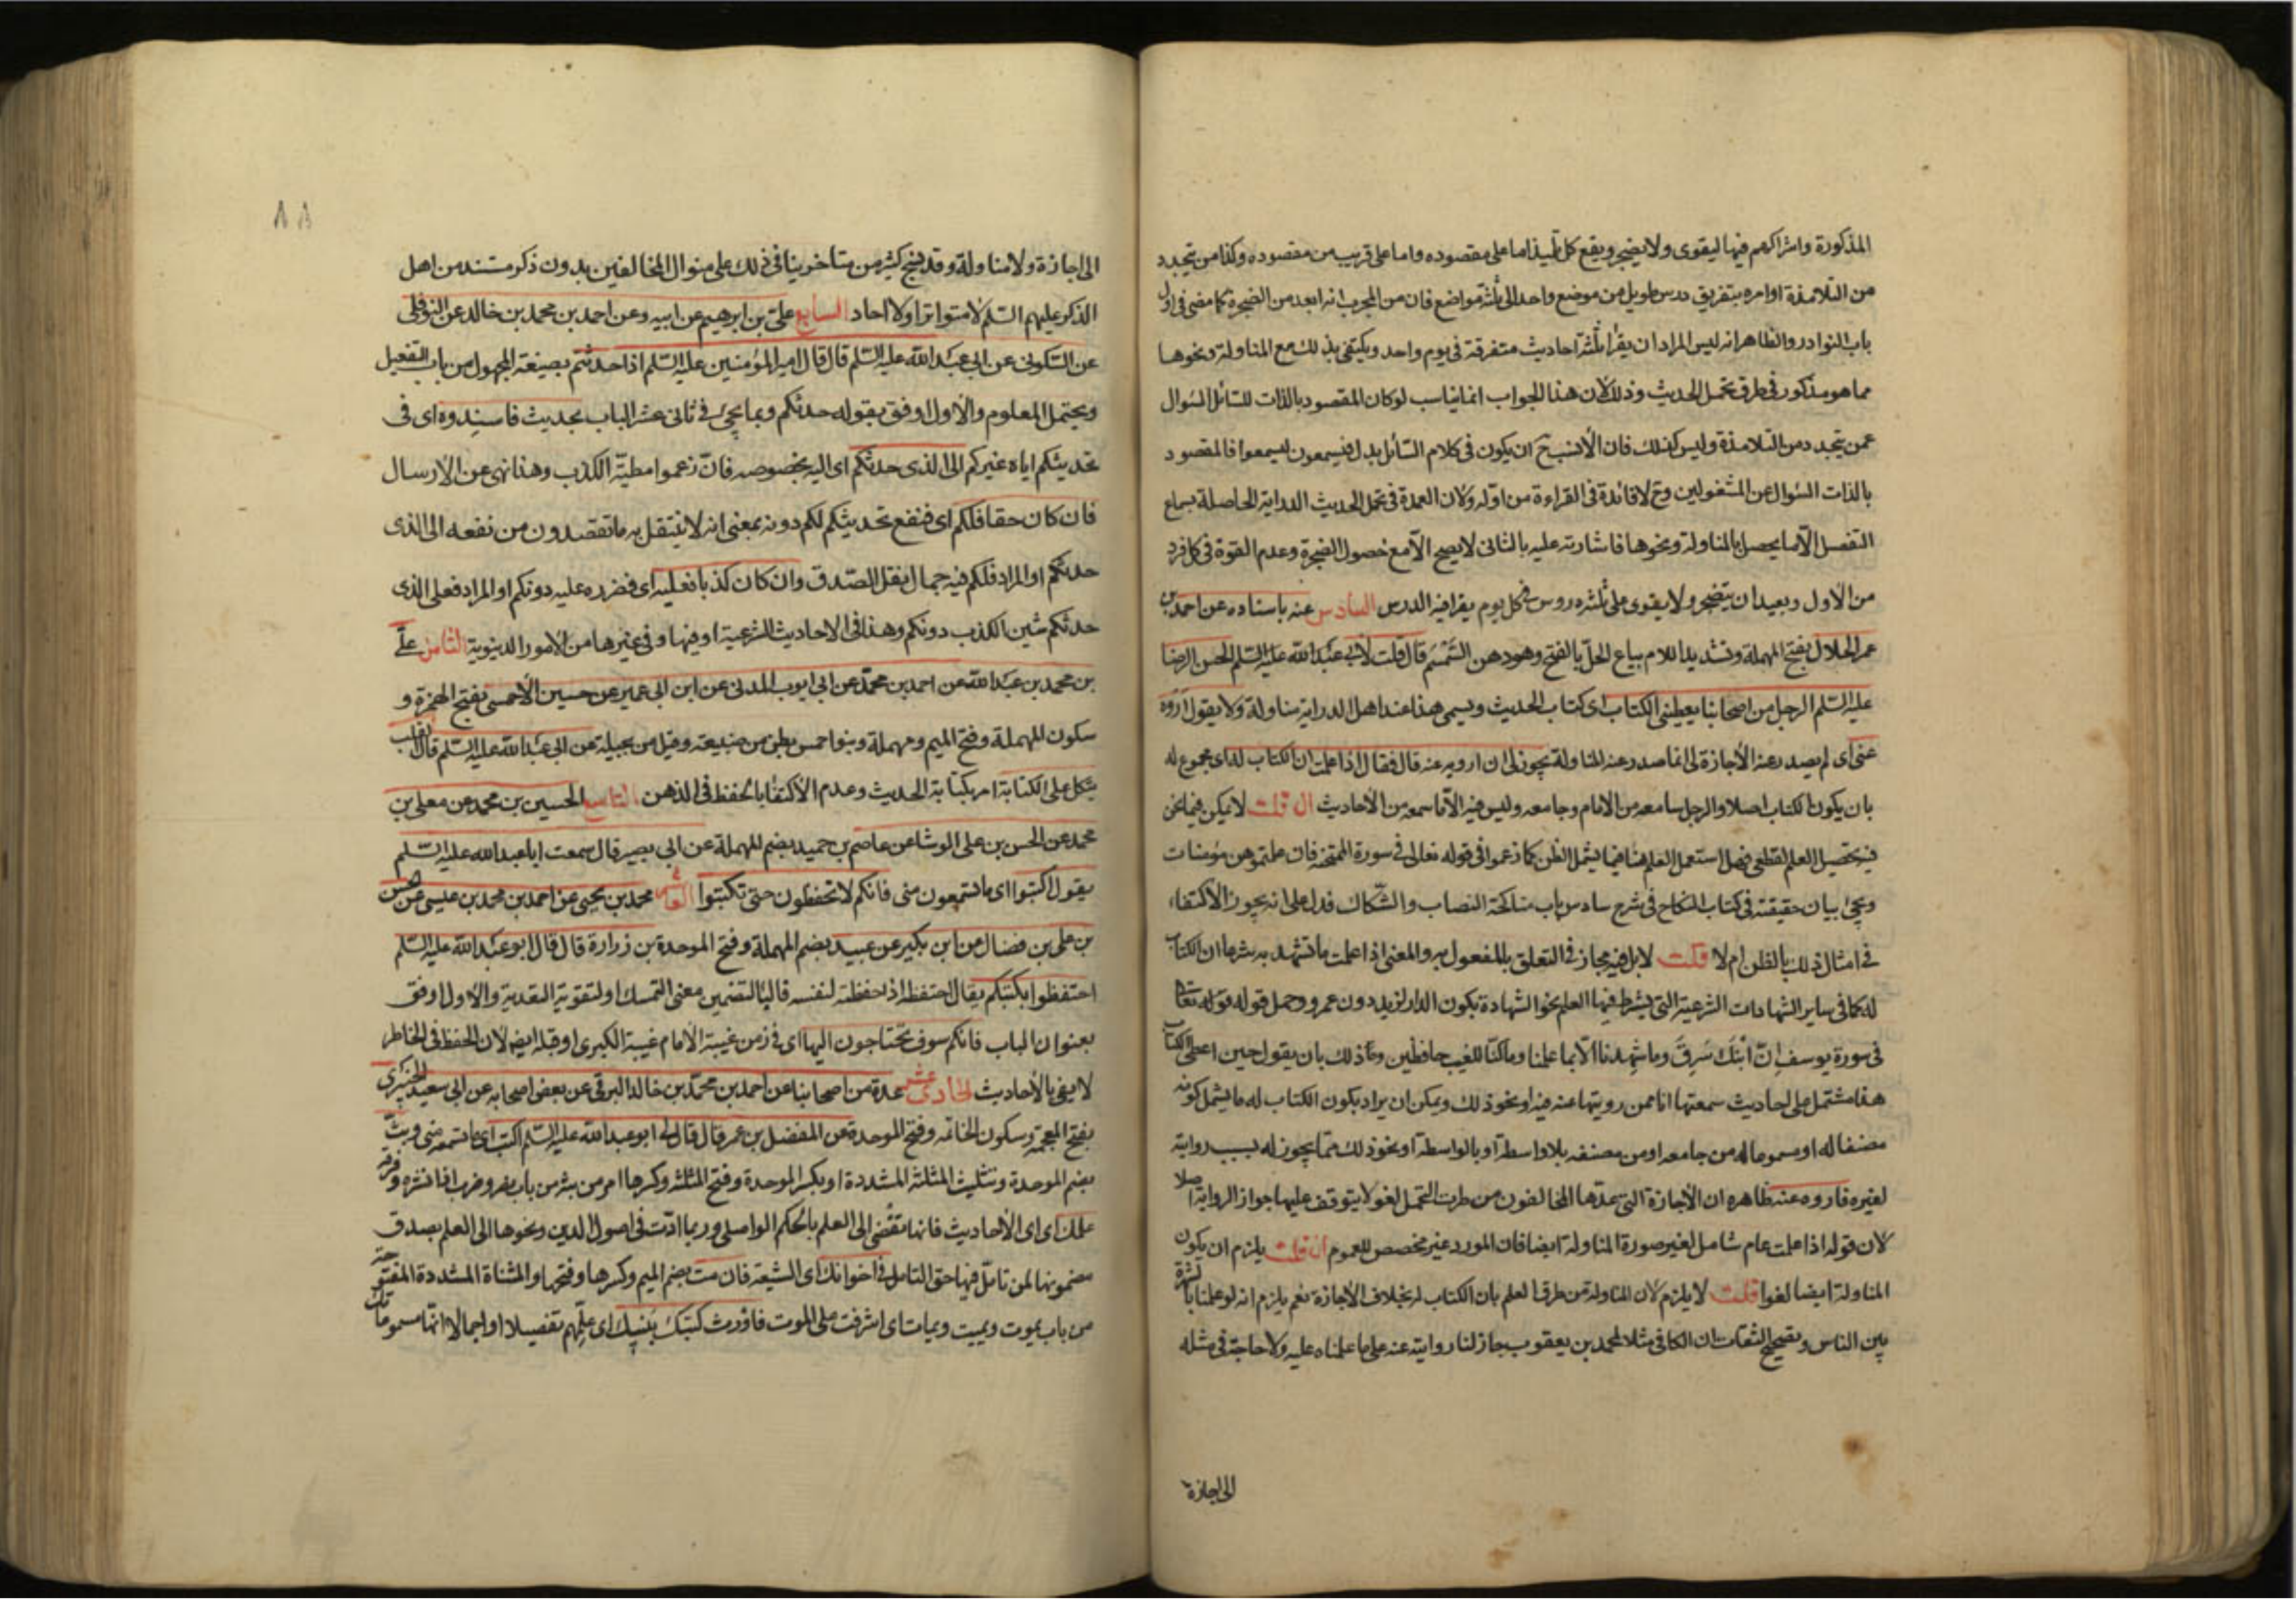 المذكورة واشراكهم فيها ليقوى ولا يضجر ويقع كل تلميذ اما على مقصوده واما على قريب من مقصوده وكذا من يتجدد
من التلامذة اوامره بتفريق درس طويل من موضع واحد الى ثلثة مواضع فان من المجرب انه ابعد من الضجرة كما مضى فى اول
باب النوادر والظاهر انه ليس المراد ان يقرأ ثلثة احاديث متفرقة فى يوم واحد ويكتفى بذلك مع المناولة ونحوها
مما هو مذكور فى طرق تحمل الحديث وذلك لان هذا الجواب انما يناسب لو كان المقصود بالذات للسائل السؤال
عمن يتجدد من التلامذة وليس كذلك فان الأنسب ح ان يكون فى كلام السائل بدل فيسمعون ليسمعوا فالمقصود
بالذات السؤال عن المشغولين وح لا فائدة فى القراءة من اوله ولان العمدة فى تحمل الحديث الدراية الحاصلة بسماع
التفصيل الا ما يحصل بالمناولة ونحوها فاشارته عليه بالثانى لا يصح الا مع حصول الضجرة وعدم القوة فى كل فرد
من الاول وبعيد ان يتضجر ولا يقوى على ثلثة دروس فى كل يوم يقرا فيه الدرس السادس عنه باسناده عن احمد بن
عمر الحلال بفتح المهملة وتشديد اللام بياع الحل بالفتح وهو دهن السمسم قال قلت لابى عبد الله عليه السلم الحسن الرضا
عليه السلم الرجل من اصحابنا يعطينى الكتاب اى كتاب الحديث ويسمى هذا عند اهل الدراية مناولة ولا يقول اروه
عنى اى لم يصدر عنه الأجازة لى انما صدر عنه المناولة يجوز لى ان ارويه عنه قال فقال اذا علمت ان الكتاب له اى مجموع له
بان يكون الكتاب اصلا والرجل سامعه من الامام وجامعه وليس فيه الا ما سمعه من الأحاديث ان قلت لا يمكن فيما نحن
فيه تحصيل العلم القطعى فهل استعمل العلم هنا فيما يشمل الظن كما زعموا فى قوله تعالى فى سورة الممتحنة فان علمتموهن مؤمنات
ويجئ بيان حقيقته فى كتاب النكاح فى شرح سادس باب مناكحة النصاب والشكاك فدل على انه يجوز الاكتفاء
فى امثال ذلك بالظن ام لا قلت لا بل فيه مجاز فى التعلق بالمفعول به والمعنى اذا علمت ما تشهد به شرعا ان الكتاب
له كما فى ساير الشهادات الشرعية التى يشترط فيها العلم نحو الشهادة بكون الدار لزيد دون عمرو وحمل قوله قوله تعالى
فى سورة يوسف ان ابنك سرق وما شهدنا الا بما علمنا وما كنا للغيب حافظين وماذلك بان يقول حين اعطى الكتاب
هذا مشتمل على احاديث سمعتها انا ممن رويتها عنه فيه او نحو ذلك ويمكن ان يراد بكون الكتاب له ما يشمل كونه
مصنفا له او مسموعا له من جامعه او من مصنفه بلا واسطة او بالواسطة او نحو ذلك مما يجوز له بسببه روايته
لغيره فاروه عنه ظاهره ان الأجازة التى عدها المخالفون من طرق التحمل لغو لا يتوقف عليها جواز الرواية اصلا
لان قوله اذا علمت عام شامل لغير صورة المناولة ايضا فان المورد غير مخصص للعموم ان قلت يلزم ان يكون
المناولة ايضا لغوا قلت لا يلزم لان المناولة من طرق العلم بان الكتاب له بخلاف الأجازة نعم يلزم انه لو علمنا بالشهرة
بين الناس وبقصحيح الثقات ان الكافى مثلا لمحمد بن يعقوب جاز لنا روايته عنه على ما علمناه عليه ولا حاجة فى مثله
الى اجازة
٨٨
الى اجازة ولا مناولة وقد نهج كثير من متاخرينا فى ذلك على منوال المخالفين بدون ذكر مستند من اهل
الذكر عليهم السلم لا متواترا ولا احاد السابع على بن ابرهيم عن ابيه وعن احمد بن محمد بن خالد عن النوفلى
عن السكونى عن ابى عبد الله عليه السلم قال قال امير المؤمنين عليه السلم اذا حدثتم بصيغة المجهول من باب التفعيل
ويحتمل المعلوم والأول اوفق بقوله حدثكم وبما يجئ فى ثانى عشر الباب بحديث فاسندوه اى فى
تحديثكم اياه غيركم الى الذى حدثكم اى اليه بخصوصه فان زعموا مطية الكذب وهذا نهى عن الارسال
فان كان حقا فلكم اى فنفع تحديثكم لكم دونه بمعنى انه لا ينتقل به ما تقصدون من نفعه الى الذى
حدثكم او المراد فلكم فيه جمال نقل الصدق وان كان كذبا فعليه اى فضرره عليه دونكم او المراد فعلى الذى
حدثكم شين الكذب دونكم وهذا فى الاحاديث الشرعية او فيها وفى غيرها من الامور الدينوية الثامن على
بن محمد بن عبد الله عن احمد بن محمد عن ابى ايوب المدنى عن ابن ابى عمير عن حسين الأحمسى بفتح الهمزة و
سكون المهملة وفتح الميم ومهملة وبنو احمس بطن من ضبيعة وقيل من بجيلة عن ابى عبد الله عليه السلم قال القلب
يتكل على الكتابة امر بكتابة الحديث وعدم الأكتفا بالحفظ فى الذهن التاسع الحسين بن محمد عن معلى بن
محمد عن الحسن بن على الوشا عن عاصم بن حميد بضم المهملة عن ابى بصير قال سمعت ابا عبد الله عليه السلم
يقول اكتبوا اى ما تسمعون منى فانكم لا تحفظون حتى تكتبوا العاشر محمد بن يحيى عن احمد بن محمد بن عيسى عن الحسن
بن على بن فضال عن ابن بكير عن عبيد بضم المهملة وفتح الموحدة بن زرارة قال قال ابو عبد الله عليه السلم
احتفظوا بكتبكم يقال احتفظه اذا حفظته لنفسه فالبا لتضمين معنى التمسك او لتقوية التعدية والأول اوفق
بعنوان الباب فانكم سوف تحتاجون اليها اى فى زمن غيبة الأمام غيبة الكبرى او قبله ايضا لان الحفظ فى الخاطر
لا يفى بالأحاديث الحادى عشر عدة من اصحابنا عن احمد بن محمد بن خالد البرقى عن بعض اصحابه عن ابى سعيد الخيبرى
بفتح المعجمة وسكون الخاتمة وفتح الموحدة عن المفضل بن عمر قال قال لى ابو عبد الله عليه السلم اكتب اى ما تسمعه منى وبث
بضم الموحدة وتثليث المثلثة المشددة او بكسر الموحدة وفتح المثلثة وكسرها امر من بثه من باب نصر وضرب اذا نشره وفرقه
علمك اى اى الأحاديث فانها تفضى الى العلم بالحكم الواصلى وربما ادت فى اصول الدين ونحوها الى العلم بصدق
مضمونها لمن تامل فيها حق التامل فى اخوانك اى الشيعة فان مت بضم الميم وكسرها وفتحها والمثناة المشددة المفتوحة
من باب يموت ويميت ويمات اى اشرفت على الموت فاورث كتبك بنيك اى علمهم تفصيلا او اجمالا انها مسموعاتك